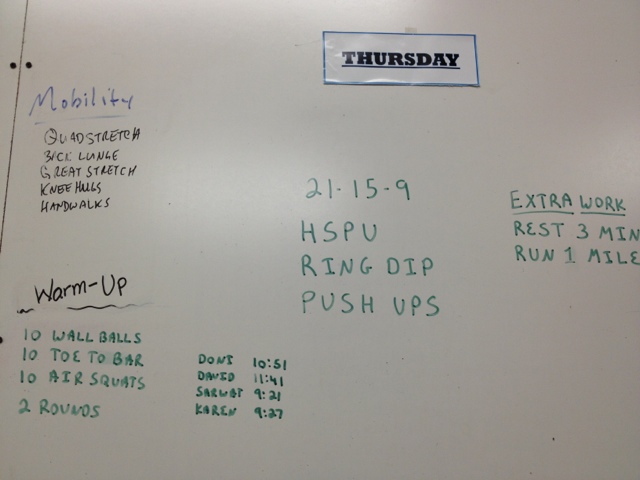 THURSDAY
Mobility
QUADSTRETCH
BACK LUNGE
GREAT STRETCH
KNEE HUGS
HANDWALKS
Warm-Up
10 WALL BALLS
10 TOE TO BAR
10 AIR SQUATS
2 ROUNDS
DONI 10:51
DAVID 11:41
SARWAT 9:21
KAREN 9:27
21-15-9
HSPU
RING DIP
PUSH UPS
EXTRA WORK
REST 3 MIN
RUN 1 MILE